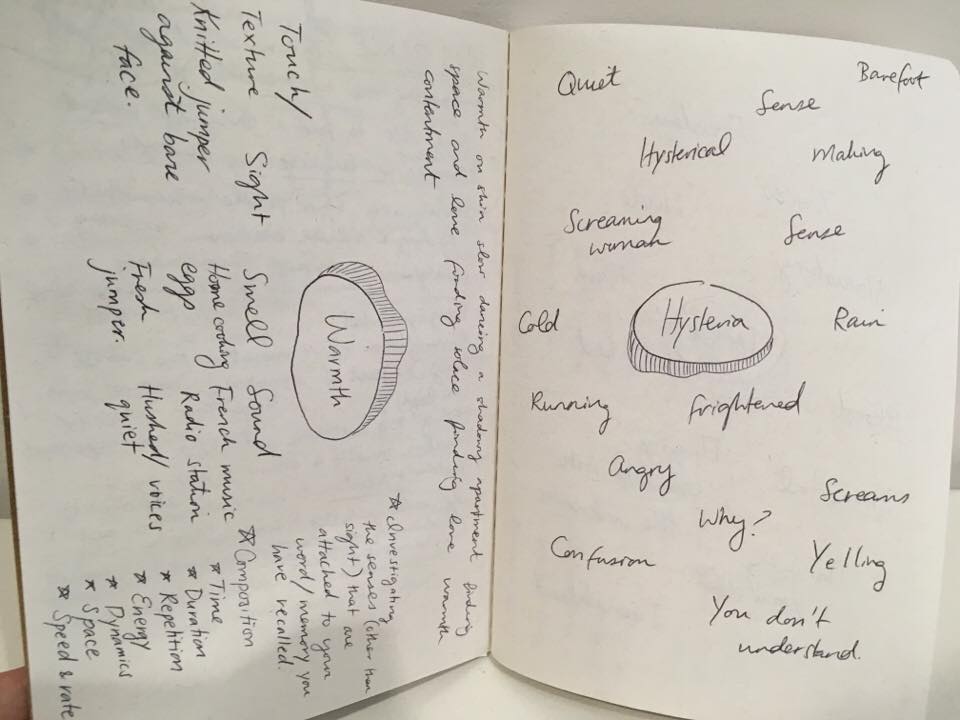 Warmth on skin slow dancing a shadowy apartment finding
space and love finding solace finding love warmth
contentment
Touch/
Texture
Knitted jumper
against bare
face.
Sight
Smell
Home cooking
eggs
Fresh
jumper.
Sound
French music
Radio station
Hushed/voices
quiet
Warmth
* Investigating
the senses (other than
sight) that are
attached to your
word/memory you
have recalled.
* Composition
* Time
* Duration
* Repetition
* Energy
* Dynamics
* Space
* Speed & rate
Quiet
Barefoot
Sense
Hysterical
Making
Screaming
woman
Sense
Cold
Hysteria
Rain
Running
Frightened
Angry
Screams
Why?
Confusion
Yelling
You don't
understand.